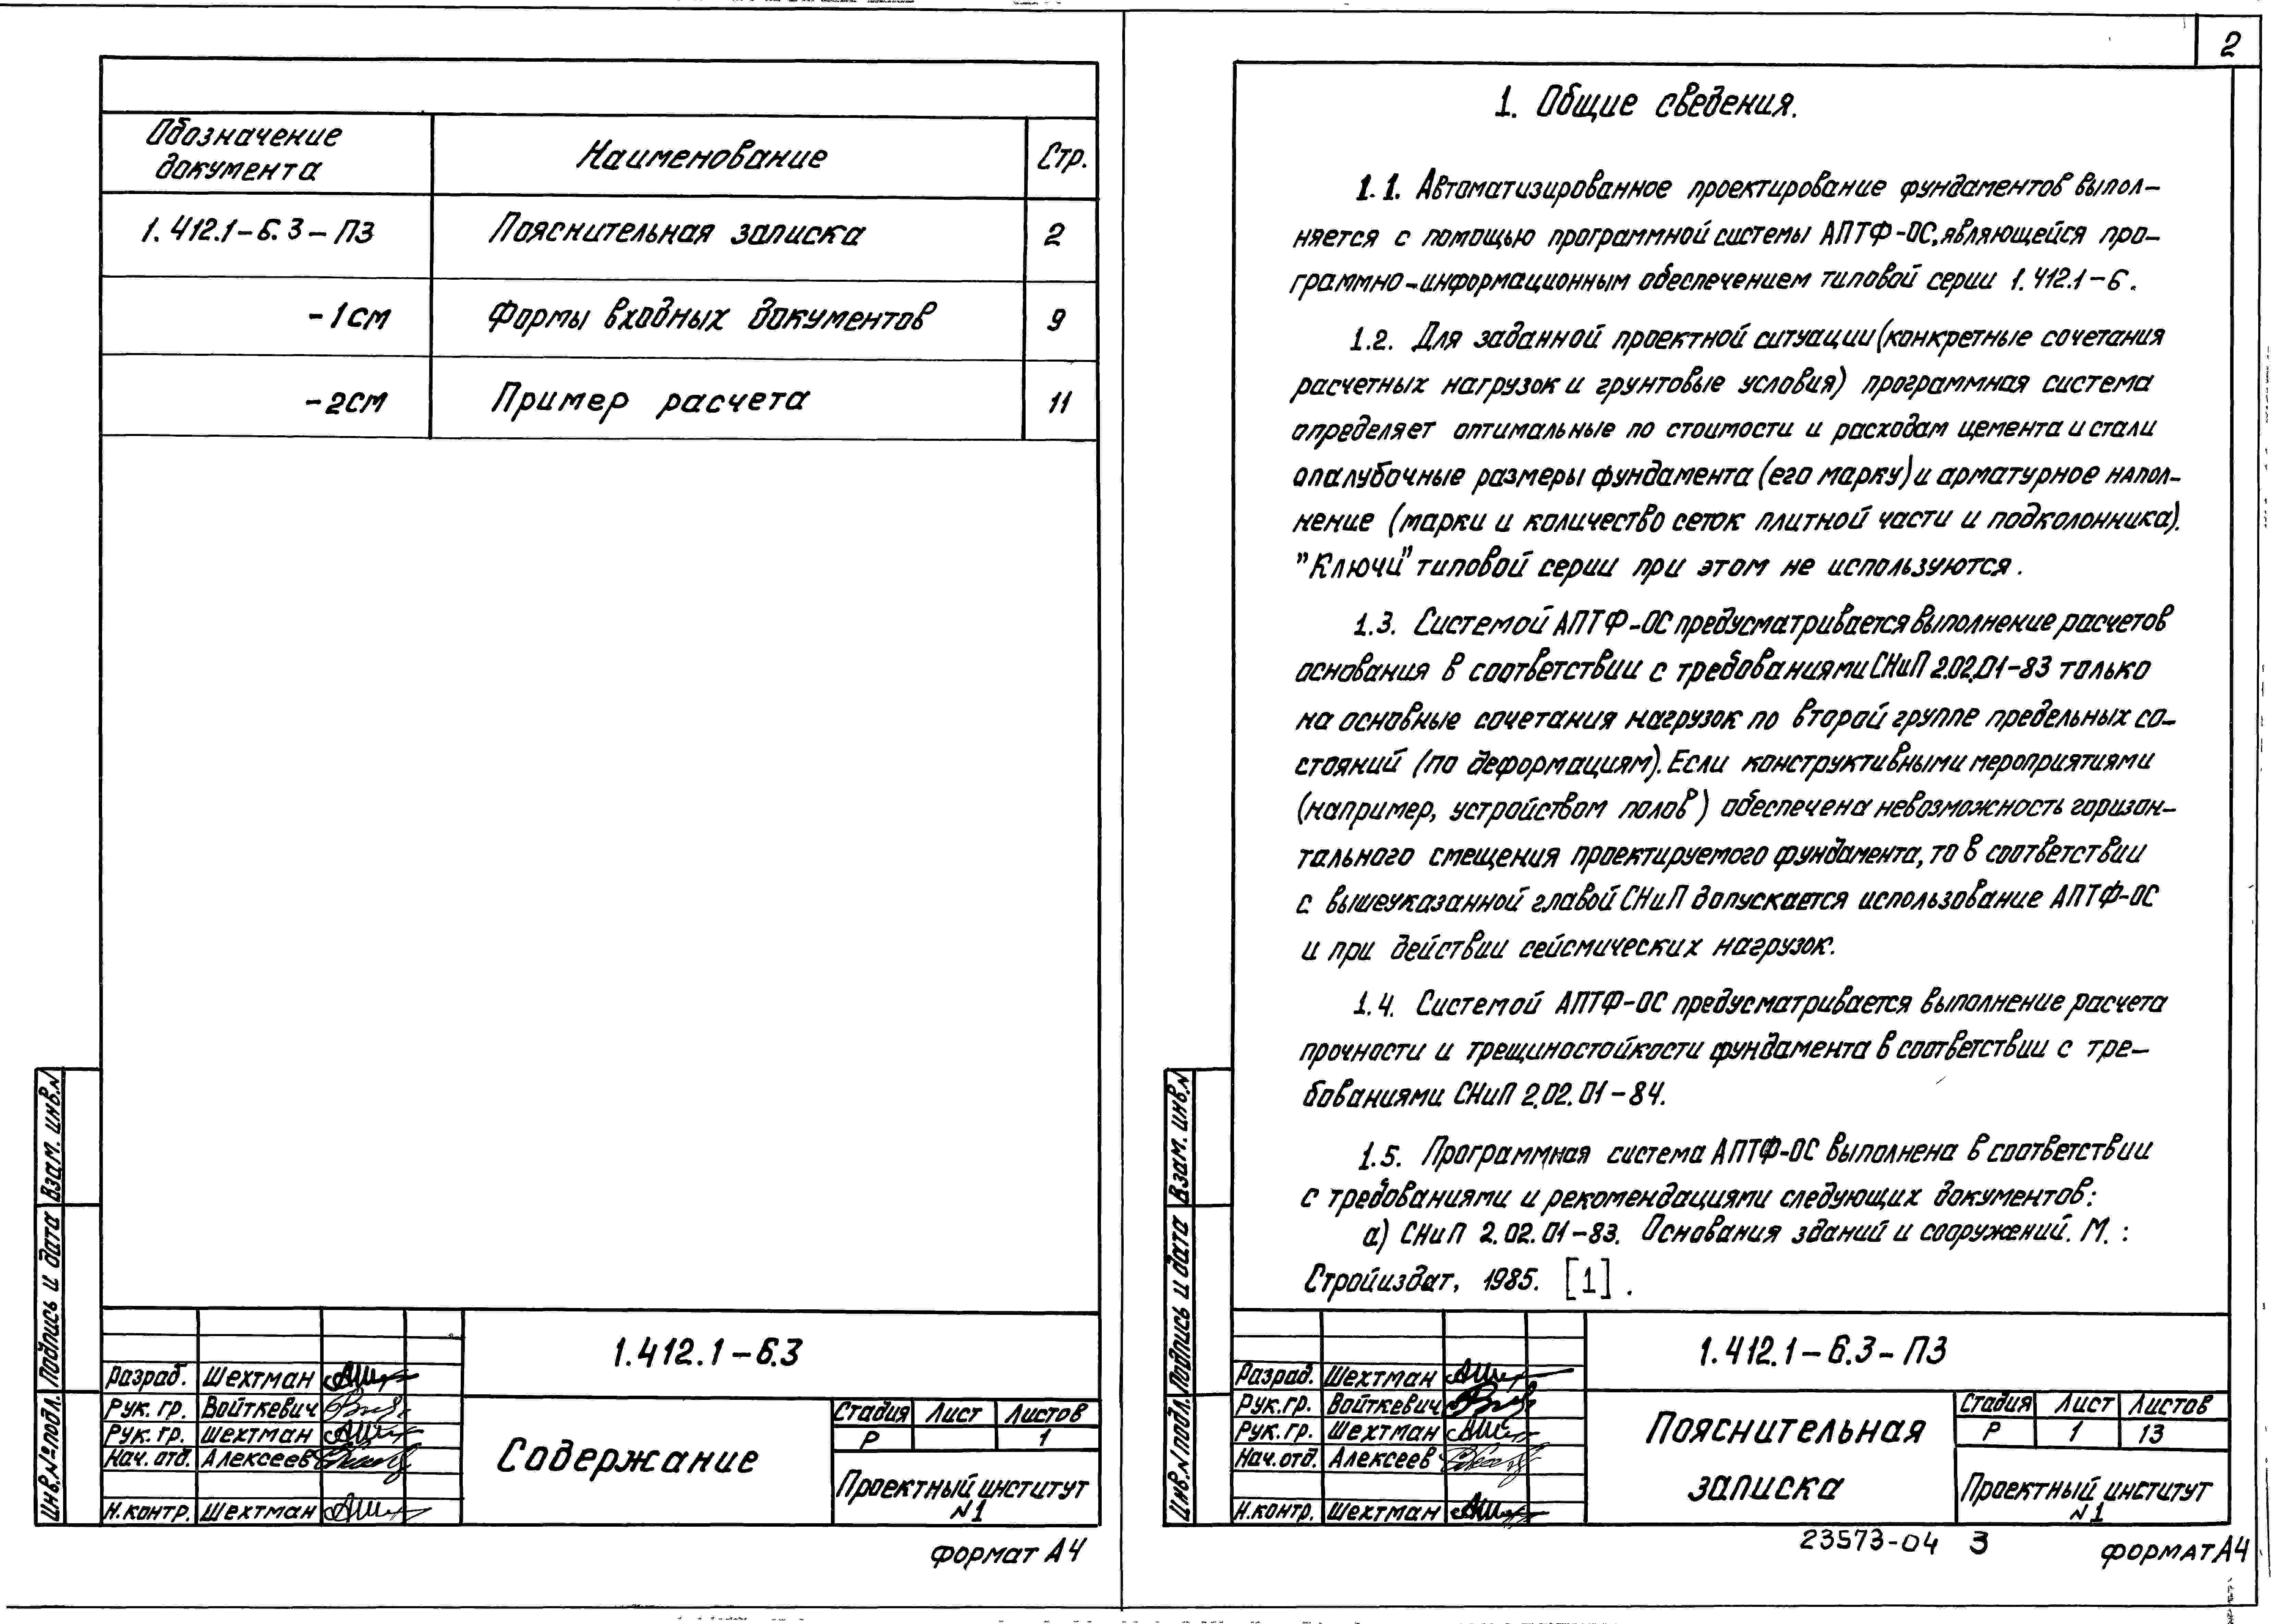 Обозначение
документа
Наименование
Стр.
1.412.1-6.3-ПЗ
Пояснительная записка
2
-1см
Формы входных документов
9
-2см
Пример расчета
11
Взам. инв.N
Подпись и дата
Инв.№подл.
1.412.1-6.3
Разраб. Шехтман
Рук. гр. Войткевич
Рук. гр. Шехтман
Нач. отд. Алексеев
Н.контр. Шехтман
Содержание
Стадия Лист Листов
Р 1
Проектный институт
N1
формат А4
2
1. Общие сведения.
1.1. Автоматизированное проектирование фундаментов выпол-
няется с помощью программной системы АПТФ-ОС, являющейся про-
граммно-информационным обеспечением типовой серии 1.412.1-6.
1.2. Для заданной проектной ситуации (конкретные сочетания
расчетных нагрузок и грунтовые условия) программная система
определяет оптимальные по стоимости и расходам цемента и стали
опалубочные размеры фундамента (его марку) и арматурное напол-
нение (марки и количество сеток плитной части и подколонника).
"Ключи" типовой серии при этом не используются.
1.3. Системой АПТФ-ОС предусматривается выполнение расчетов
основания в соответствии с требованиями СНиП 2.02.01-83 только
на основные сочетания нагрузок по второй группе предельных со-
стояний (по деформациям). Если конструктивными мероприятиями
(например, устройством полов) обеспечена невозможность горизон-
тального смещения проектируемого фундамента, то в соответствии
с вышеуказанной главой СНиП допускается использование АПТФ-ОС
и при действии сейсмических нагрузок.
1.4. Системой АПТФ-ОС предусматривается выполнение расчета
прочности и трещиностойкости фундамента в соответствии с тре-
бованиями СНиП 2.02.01-84.
1.5. Программная система АПТФ-ОС выполнена в соответствии
с требованиями и рекомендациями следующих документов:
а) СНиП 2.02.01-83. Основания зданий и сооружений. М. :
Стройиздат, 1985. [1].
Взам. инв.N
Подпись и дата
Инв.N подл.
1.412.1-6.3-ПЗ
Разраб. Шехтман
Рук.гр. Войткевич
Рук.гр. Шехтман
Нач.отд. Алексеев
Н.контр. Шехтман
Пояснительная
записка
Стадия Лист Листов
Р 1 13
Проектный институт
N1
23573-04 3
формат А4